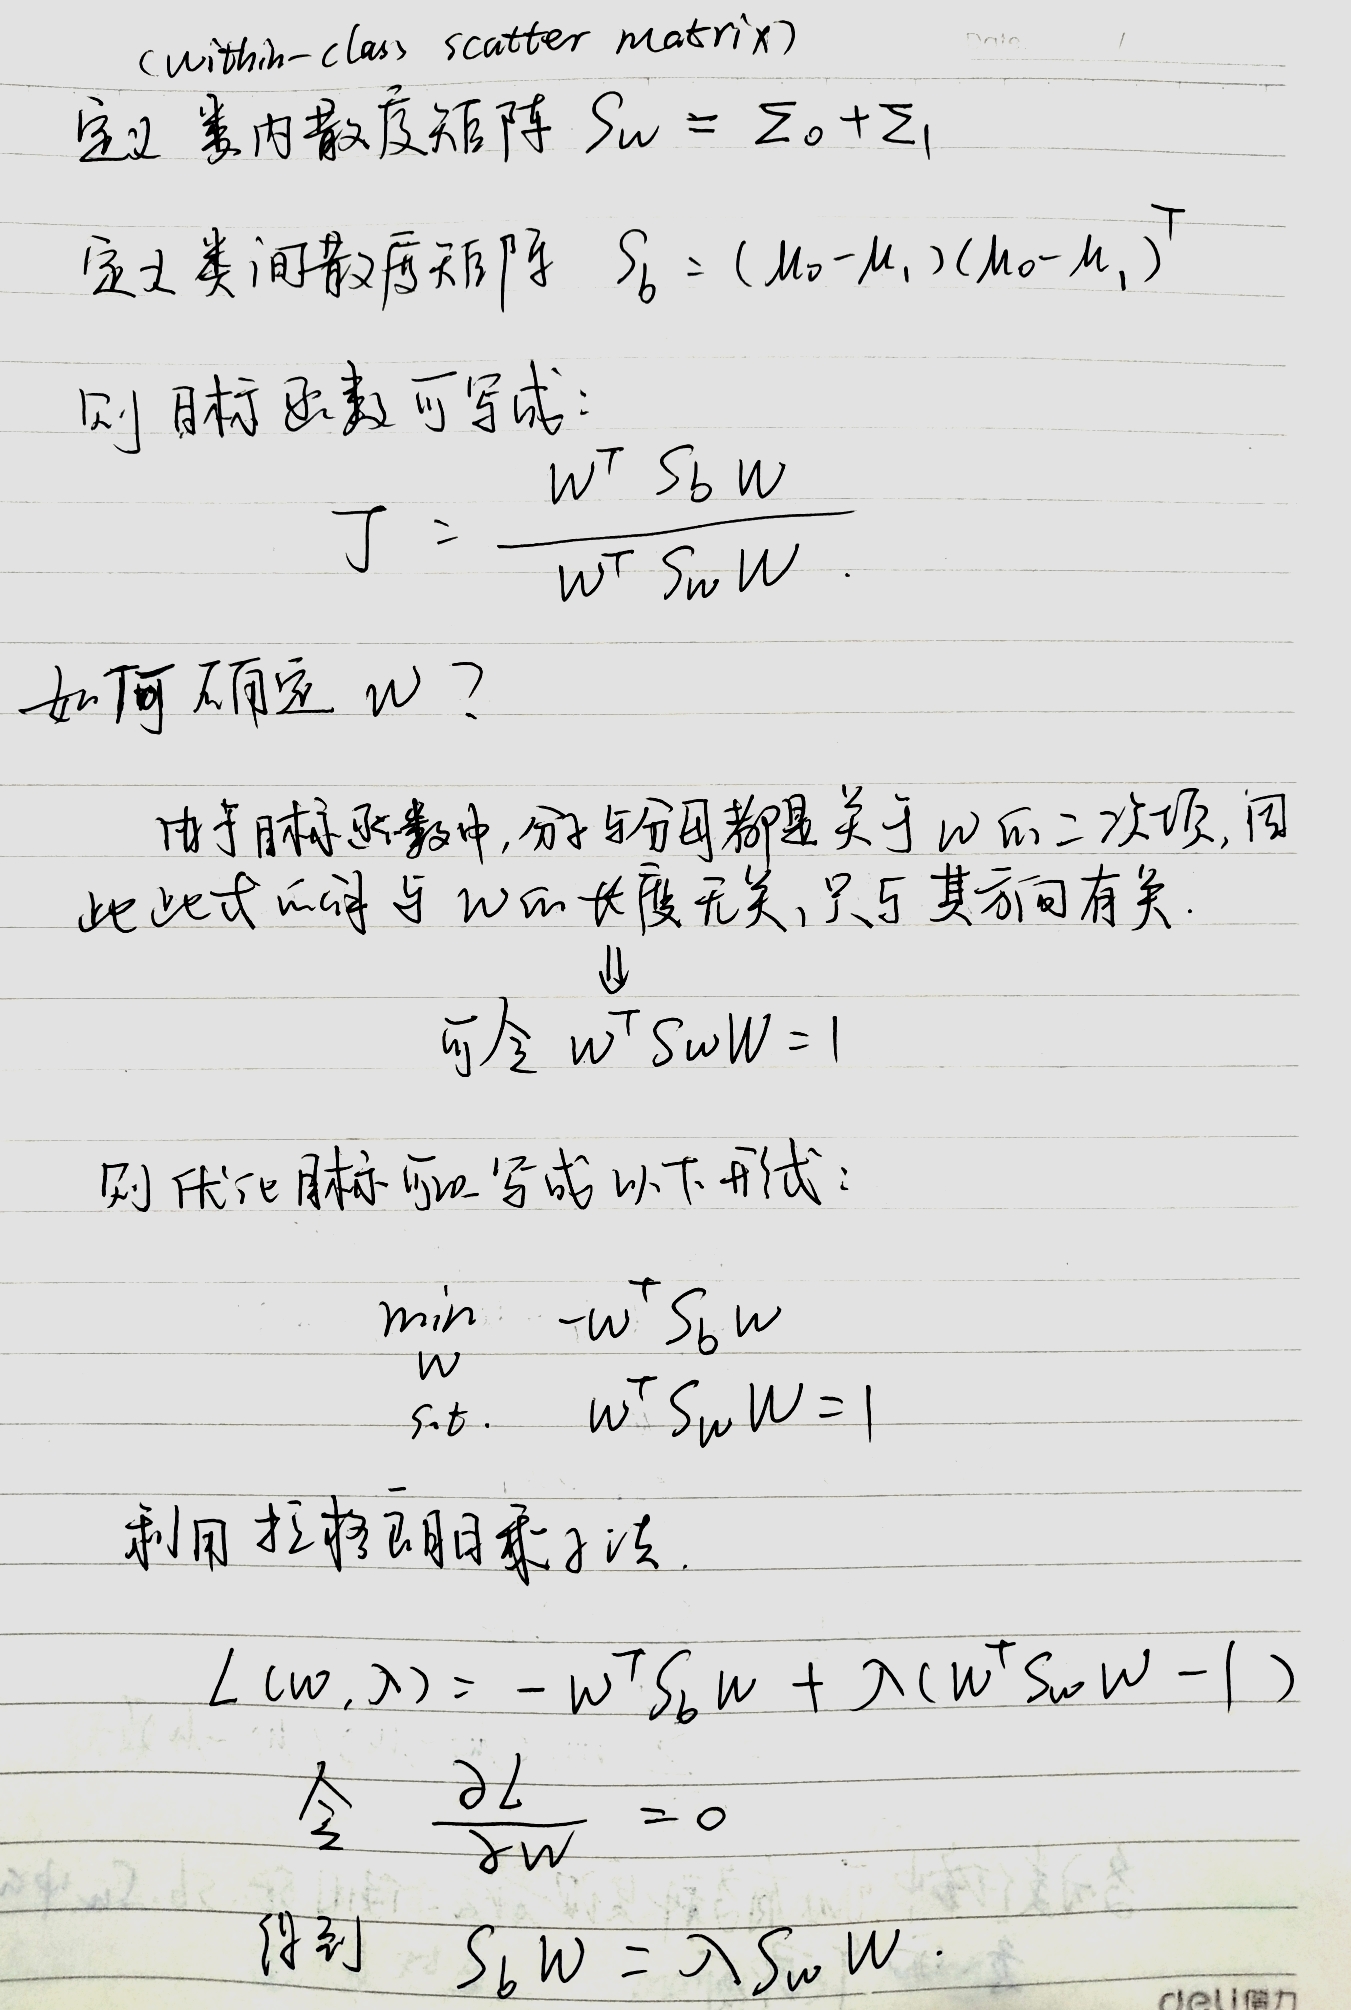 (within-class scatter matrix)
定义 类内散度矩阵 Sw = Σ₀+Σ₁
定义类间散度矩阵 S_b = (μ₀-μ₁)(μ₀-μ₁)ᵀ
则目标函数可写成:
J = (wᵀ S_b w) / (wᵀ S_w w).
如何确定 w?
由于目标函数中,分子与分母都是关于w的二次项,因
此此式的解与w的长度无关,只与其方向有关.
⇓
可令 wᵀSwW=1
则优化目标可以写成以下形式:
min -wᵀS_b w
w
s.t. wᵀS_w w=1
利用拉格朗日乘子法.
L(w,λ)= -wᵀS_b w + λ(wᵀS_w w -1)
令 ∂L/∂w =0
得到 S_b w = λS_w w.
deli得力